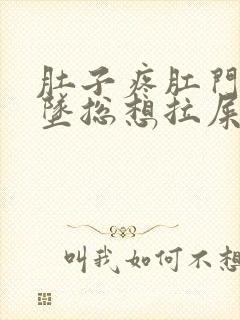 肚子疼肛門
墜总想拉屎
叫我如何不想